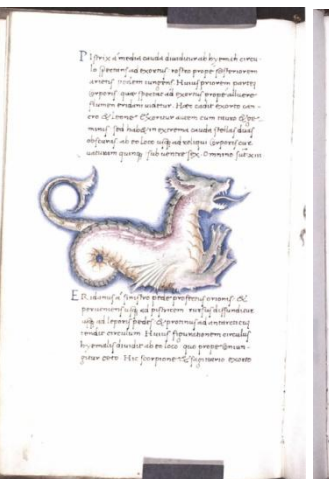 PIstrix a media cauda diuiditur ab hyemali circu
lo spectans ad exortus rostro prope posteriorem
arietis pedem iungens. Huius priorem partem
corporis quae spectat ad exortus prope alluere
flumen eridani uidetur. Haec cadit exorto can
cro & leone Exoritur autem cum tauro & ge
minis sed habet in extrema cauda stellas duas
obscuras ab eo loco usq ad reliqui corporis cur
uaturam quinq sub uentre sex. Omnino sunt xiii
ERidanus a sinistro pede profectus orionis &
perueniens usq ad pistricem rursus diffunditur
usq ad leporis pedes & protinus ad antarcticum
tendit circulum Huius figurationem circulus
hyemalis diuidit ab eo loco quo prope coniun
gitur ceto Hic scorpione & sagittario exorto